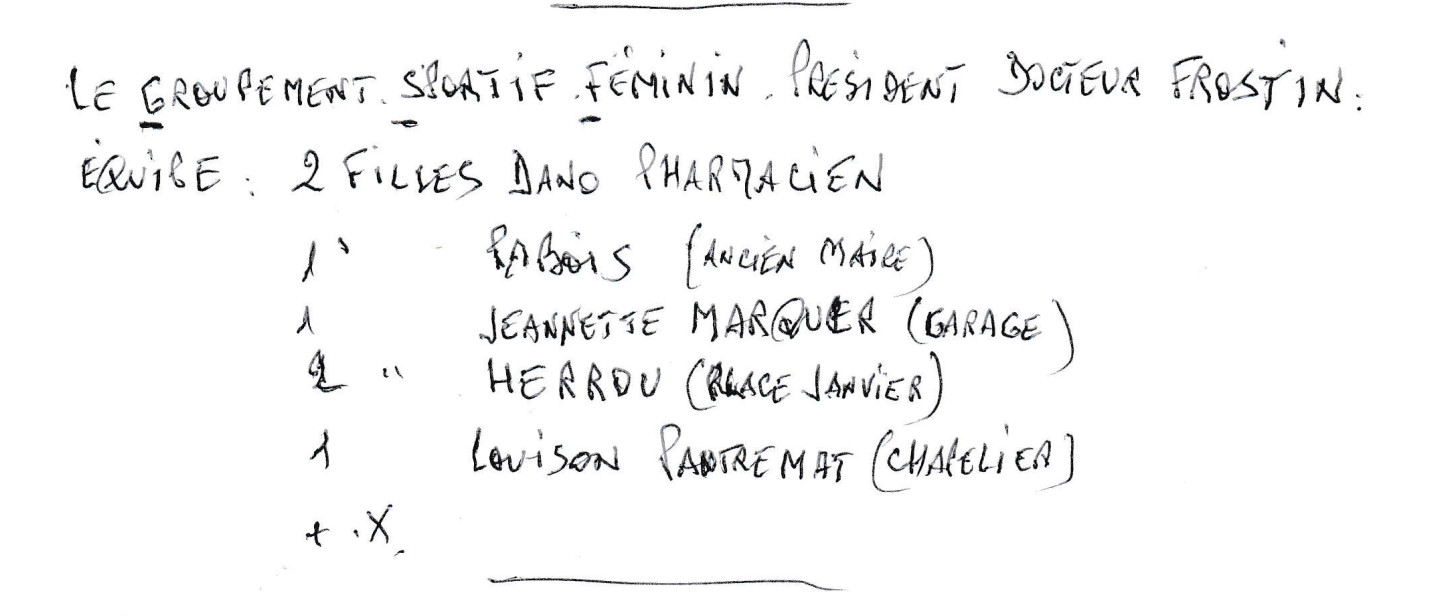 LE GROUPEMENT. SPORTIF. FÉMININ. PRÉSIDENT DOCTEUR FROSTIN:
ÉQUIPE: 2 FILLES DANO PHARMACIEN
1 " RABOIS (ANCIEN MAIRE)
1 JEANNETTE MARQUER (GARAGE)
2 " HERROU (PLACE JANVIER)
1 LOUISON PANTREMAT (CHAPELIER)
+ .X.